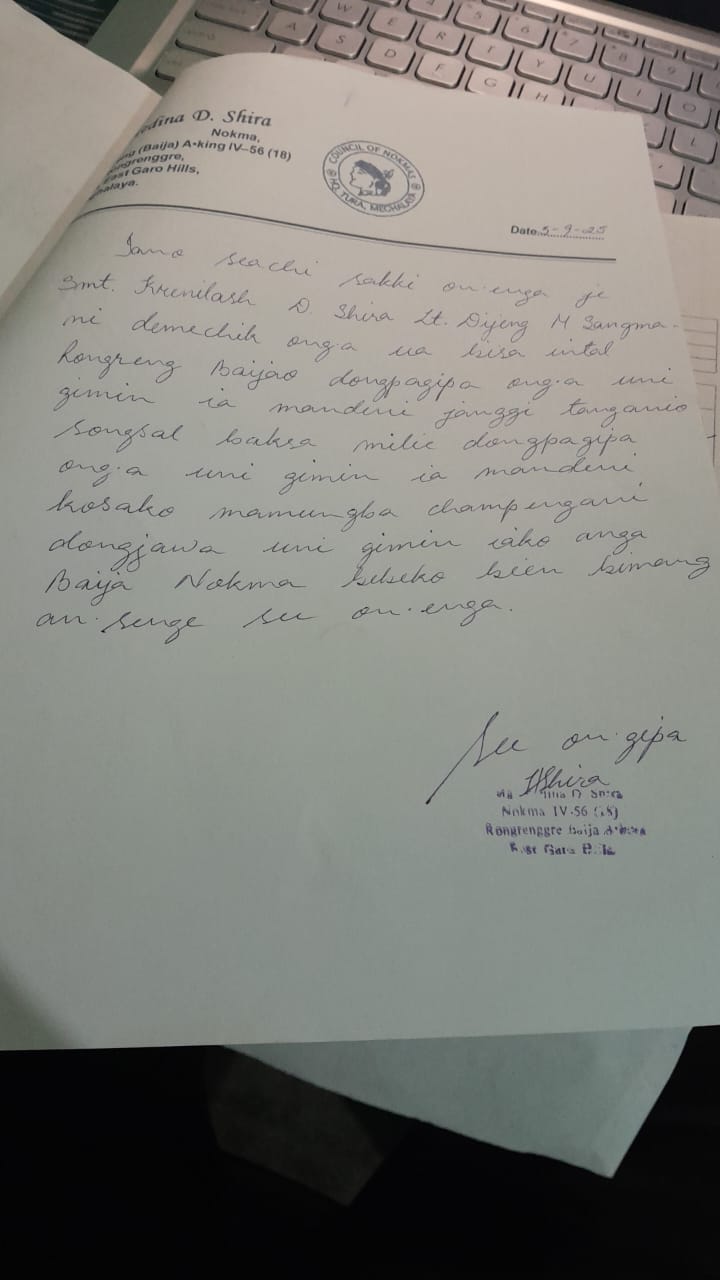 edina D. Shira
Nokma,
ng (Baija) A•king IV–56 (18)
ngrenggre,
ast Garo Hills,
halaya.
COUNCIL OF NOKMAS
HQ. TURA, MEGHALAYA
Date. 5-9-25
Iano seachi sakki on·enga je
Smt. Krenilash D. Shira Lt. Dijeng M Sangma-
ni demechik ong·a ua bisa intal
Rongreng Baijao dongpagipa ong·a uni
gimin ia mandini janggi tanganio
songsal baksa milie dongpagipa
ong·a uni gimin ia mandini
kosako mamungba champengani
dongjawa uni gimin iako anga
Baija Nokma bebeko bien bimang
an·senge see on·enga.
See on·gipa
Shira
Nokma IV-56 (18)
Rongrenggre Baija A·king
East Garo Hills